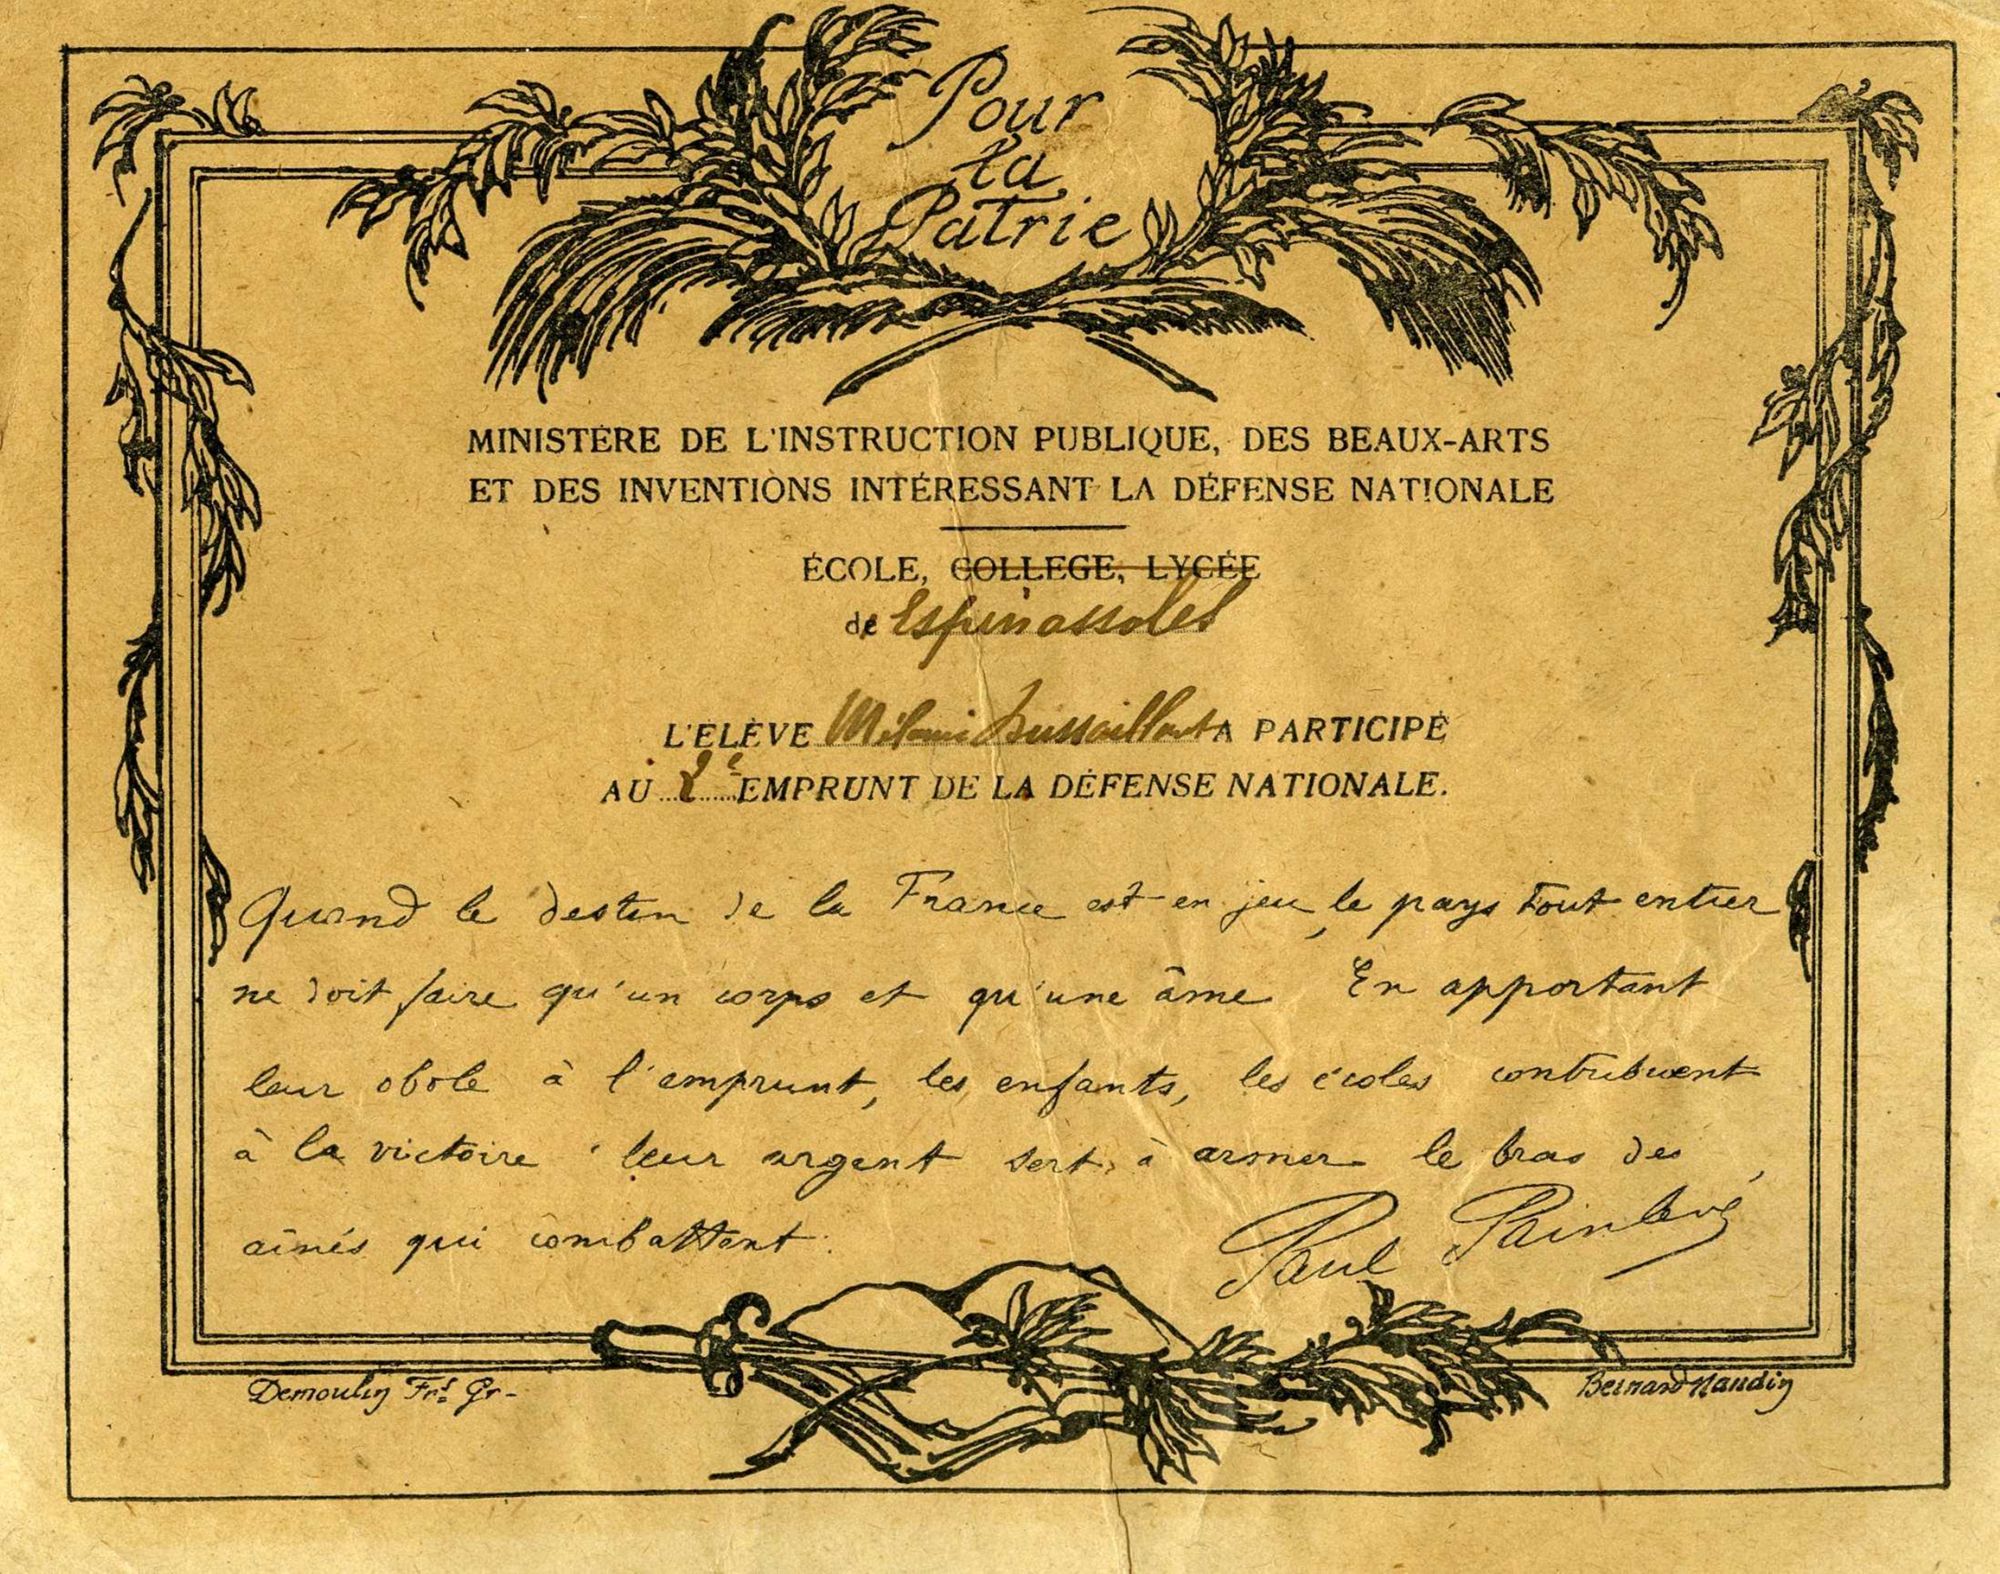 Pour
la
Patrie
MINISTÈRE DE L'INSTRUCTION PUBLIQUE, DES BEAUX-ARTS
ET DES INVENTIONS INTÉRESSANT LA DÉFENSE NATIONALE
ÉCOLE, COLLEGE, LYCÉE
de Espinassoles
L'ÉLÈVE Mélanie A PARTICIPÉ
AU 2e EMPRUNT DE LA DÉFENSE NATIONALE.
Quand le destin de la France est en jeu, le pays tout entier
ne doit faire qu'un corps et qu'une âme. En apportant
leur obole à l'emprunt, les enfants, les écoles contribuent
à la victoire : leur argent sert à armer le bras des
aînés qui combattent.
Paul Painlevé
Demoulin Frs Gr-
Bernard Naudin